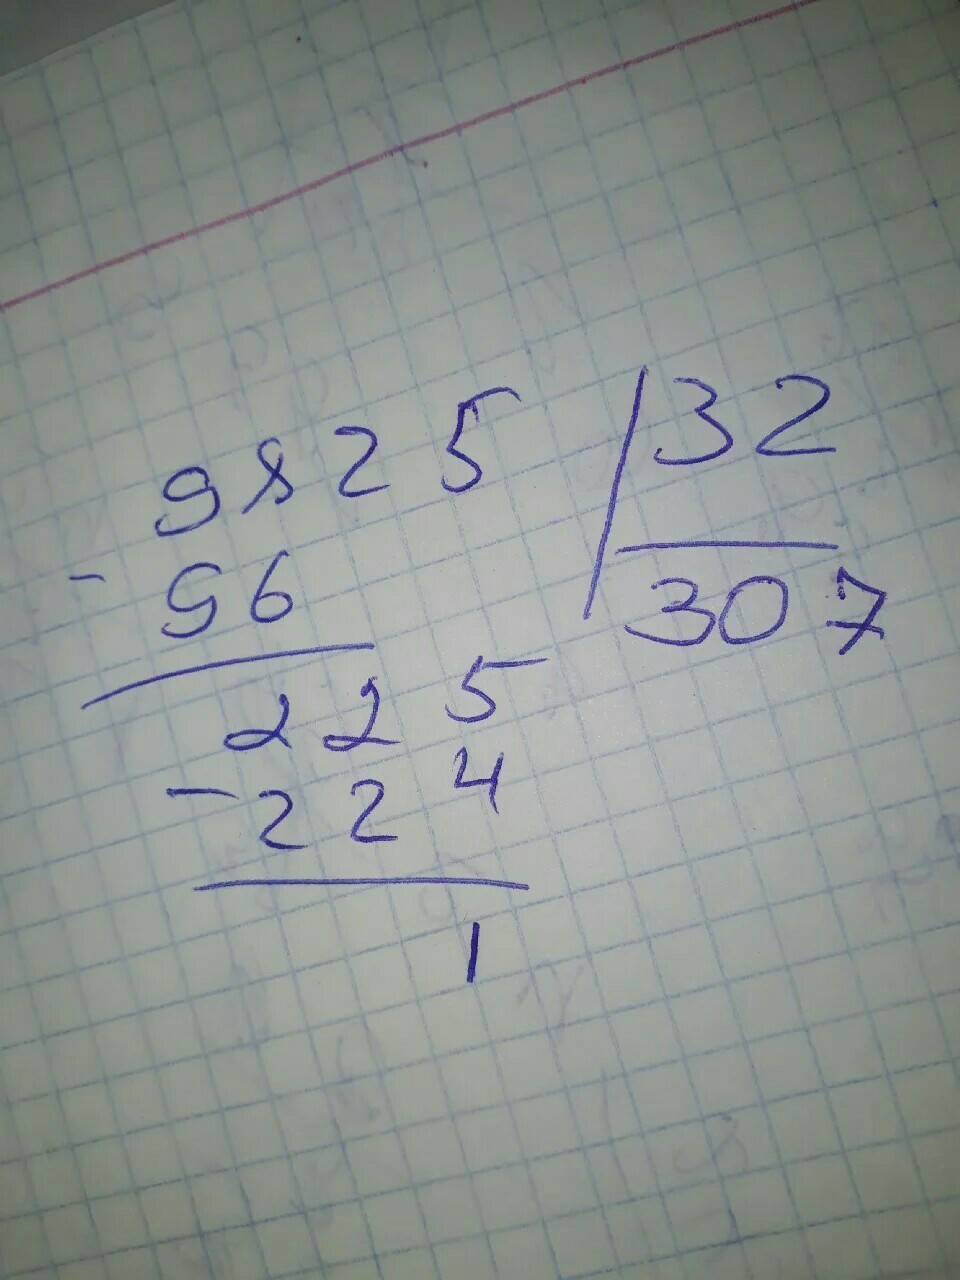 9825 32
- 96 307
225
- 224
1